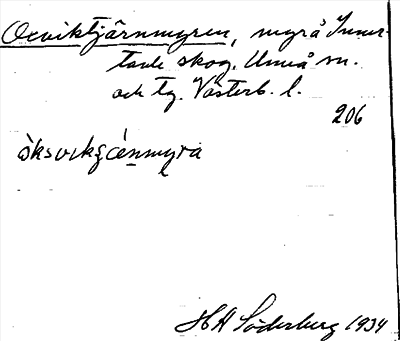 Oxviktjärnmyren, myr å Inner-
tavle skog, Umeå sn.
och tg. Västerb. l.
206
òksvikʂcénmyra
H H Söderberg 1934